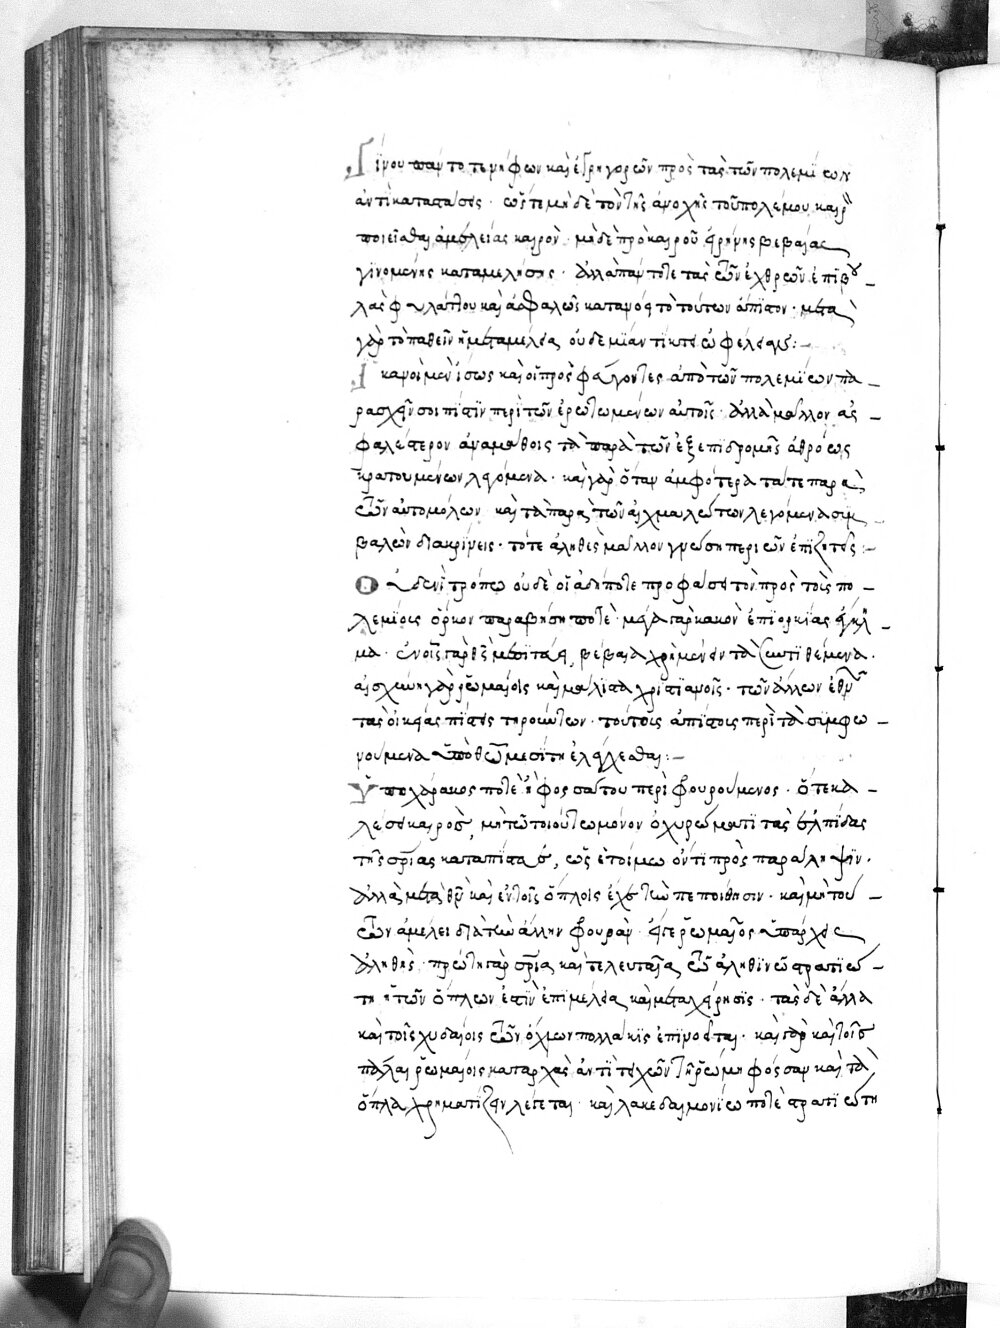 Γίνου πάντοτε νήφων καὶ ἐγρηγορῶν πρὸς τὰς τῶν πολεμίων
ἀντικαταστάσεις · ὥστε μηδὲ τὸν τῆς ἀνοχῆς τοῦ πολέμου καιρὸν
ποιεῖσθαι ἀμελείας καιρὸν · μηδὲ πρὸ καιροῦ εἰρήνης βεβαίας
γινομένης καταμελήσῃς · ἀλλὰ πάντοτε τὰς τῶν ἐχθρῶν ἐπιβου
λὰς φυλάττου καὶ ἀσφαλῶς κατανόει τὸ τούτων ἄπιστον · μετὰ
γὰρ τὸ παθεῖν ἡ μεταμέλεια, οὐδεμίαν τίκτει ὠφέλειαν :
Ἱκανοὶ μὲν ἴσως καὶ οἱ προσφεύγοντες ἀπὸ τῶν πολεμίων πα
ρασχεῖν σοι πίστιν περὶ τῶν ἐρωτωμένων αὐτοῖς · ἀλλὰ μᾶλλον ἀσ
φαλέστερον ἀναμάθοις τὰ παρὰ τῶν ἐξ ἐπιδρομῆς ἀθρόως
κρατουμένων λεγόμενα · καὶ γὰρ ὅταν ἀμφότερα τά τε παρὰ
τῶν αὐτομόλων καὶ τὰ παρὰ τῶν αἰχμαλώτων λεγόμενα συμ
βαλὼν διακρίνεις · τότε ἀληθὲς μᾶλλον γνώσῃ περὶ ὧν ἐπιζητεῖς :
Οὐδενὶ τρόπῳ οὐδὲ οἱᾳδήποτε προφάσει τὸν πρὸς τοὺς πο
λεμίους ὅρκον παραβήσῃ ποτέ · μέγα γὰρ κακὸν ἐπιορκίας ἔγκλη
μα · ἐν οἷς γὰρ θεὸς μεσιτεύει, βεβαια χρὴ μένειν τὰ συντιθέμενα ·
αἰσχύνη γὰρ ῥωμαίοις καὶ μάλιστα χριστιανοῖς · τῶν ἄλλων ἐθνῶν
τὰς οἰκείας πίστεις τηρούντων · τούτοις ἀπίστοις περὶ τὰ συμφω
νούμενα ὑπὸ θεῷ μεσίτῃ ἐλέγχεσθαι :
Ὑπὸ χάρακος ποτὲ ἢ φόσσατου περιφρουρούμενος · ὅτε κα
λέσει καιρός, μὴ τῷ τοιούτῳ μόνον ὀχυρώματι τὰς ἐλπίδας
τῆς σωτηρίας καταπίστευε, ὡς ἑτοίμῳ ὄντι πρὸς παράληψιν ·
ἀλλὰ μετὰ θεὸν καὶ ἐν τοῖς ὅπλοις ἔχε τὴν πεποίθησιν · καὶ μὴ τού
των ἀμέλει διὰ τὴν ἄλλην φρουράν · εἴπερ ῥωμαῖος ὑπάρχεις
ἀληθής · πρώτη γὰρ σωτηρία καὶ τελευταία, τῷ ἀληθινῷ στρατιώ
τῃ ἡ τῶν ὅπλων ἐστὶν ἐπιμέλεια, καὶ μεταχείρησις · τὰς δὲ ἄλλα
καὶ τοῖς χυδαίοις τῶν ὄχλων πολλάκις ἐπινοεῖται · καὶ γὰρ καὶ τοῖς
πάλαι ῥωμαίοις καταρχὰς ἀντὶ τειχῶν τῇ ῥώμῃ φόσσαν καὶ τὰ
ὅπλα χρηματίζειν λέγεται · καὶ λακεδαιμονίῳ ποτὲ στρατιώτῃ